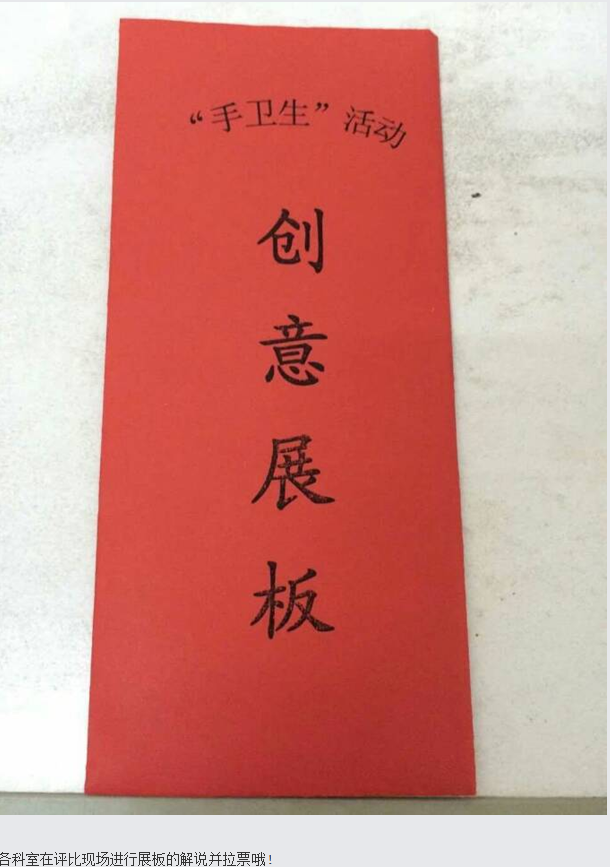 “手卫生”活动
创
意
展
板
各科室在评比现场进行展板的解说并拉票哦！